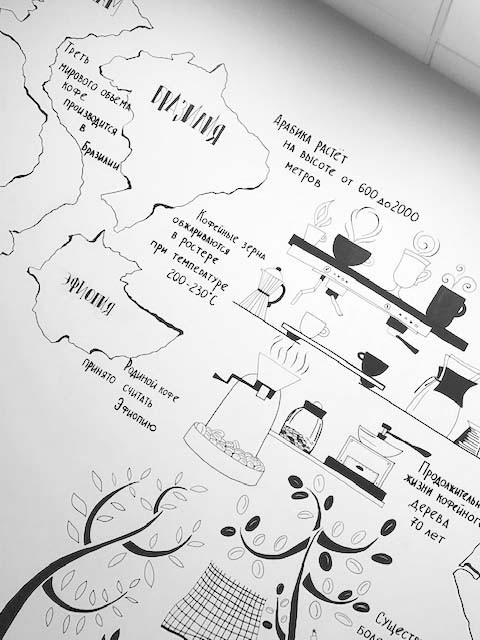 АМ
Треть
мирового объема
кофе
производится
в
Бразилии
БРАЗИЛИЯ
Арабика растёт
на высоте от 600 до 2000
метров
Кофейные зерна
обжариваются
в ростере
при температуре
200-230°C
ЭФИОПИЯ
Родиной кофе
принято считать
Эфиопию
Продолжительн
жизни кофейного
дерева
70 лет
Существ
бол